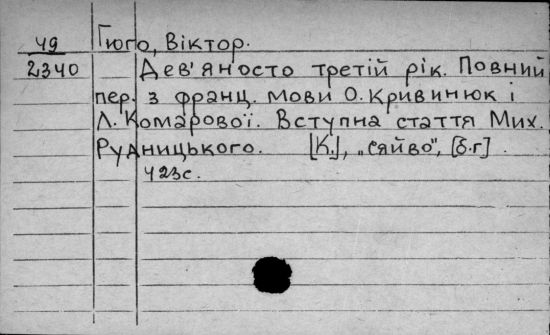 49 Гюго, Віктор.
2340 Дев'яносто третій рік. Повний
пер. з франц. мови О. Кривинюк і
Л. Комарової. Вступна стаття Мих.
Рудницького. [К.], „Сяйво", [б.г].
423с.